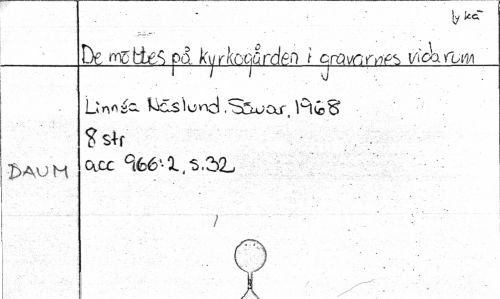 lyckå
De möttes på kyrkogården i gravarnes vida rum
Linnéa Näslund. Sävar, 1968
8 str
DAUM acc 966:2, s.32